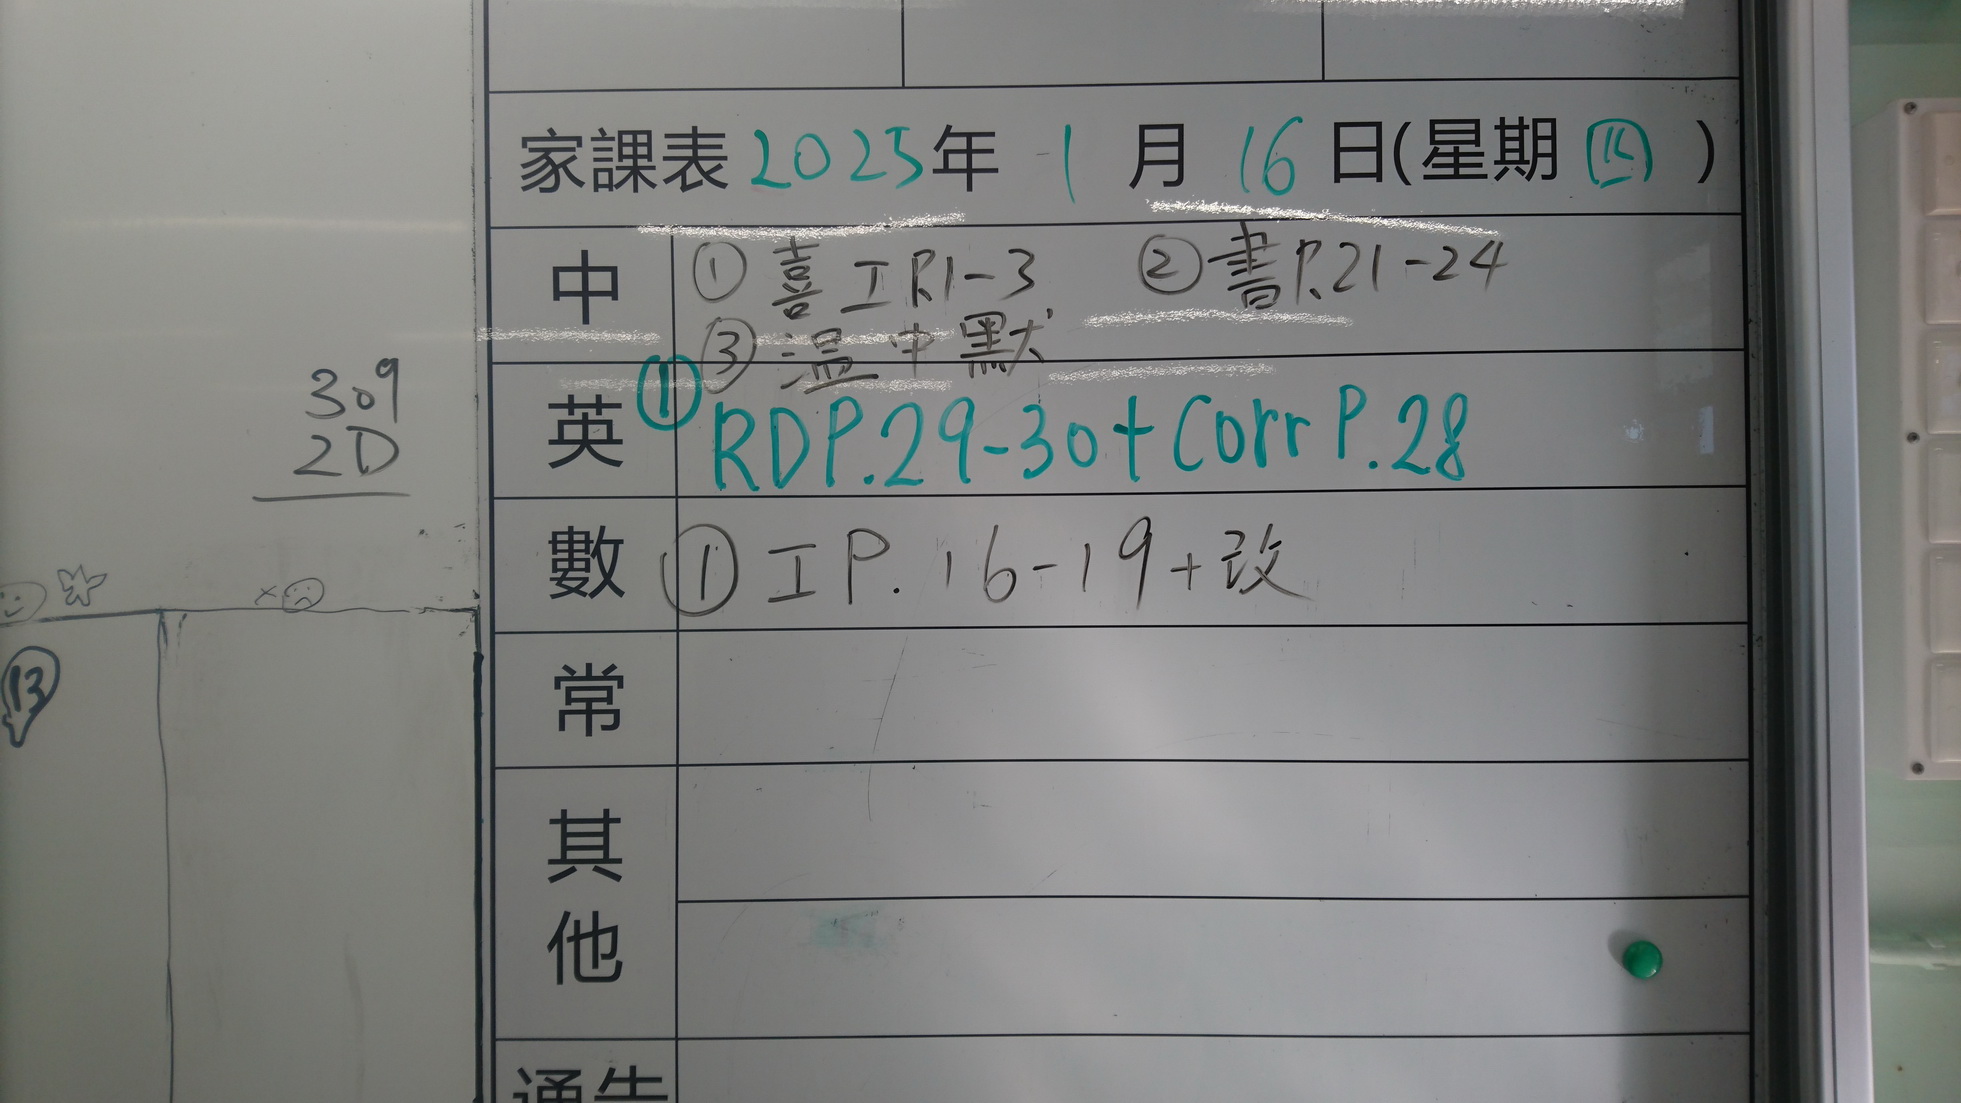 家課表 2025年 1月 16日(星期四)
中 ① 喜工P.1-3 ② 書P.21-24
③ 溫中默
英 ① RD P.29-30 + Corr P.28
數 ① 工P.16-19+改
常
其他
通告
309
2D
13